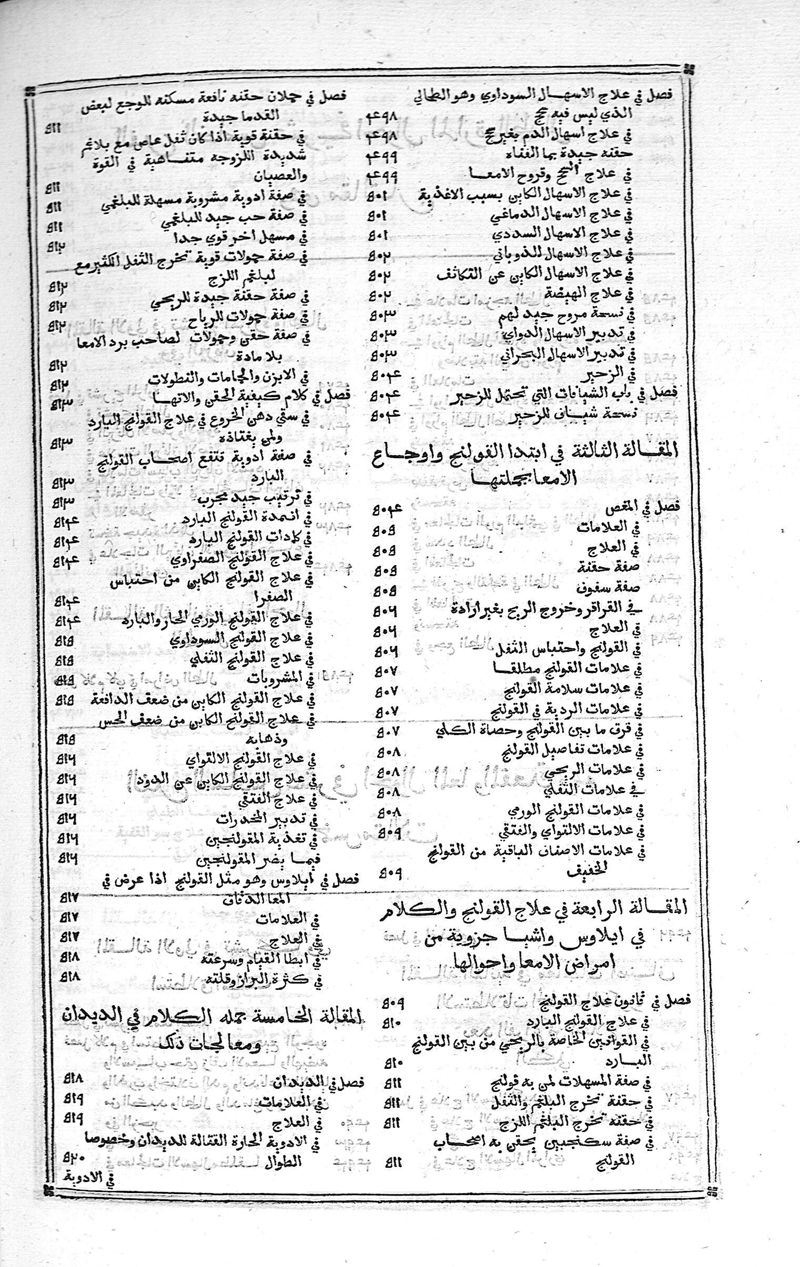 فصل في علاج الاسهال السوداوي وهو الطحالي
الذي ليس فيه سحج ٤٩٨
في علاج اسهال الدم بغير سحج ٤٩٨
حقنه جيدة بها الفناه ٤٩٩
في علاج السحج وقروح الامعا ٤٩٩
في علاج الاسهال الكاين بسبب الاغذية ٥٠١
في علاج الاسهال الدماغي ٥٠١
في علاج الاسهال السددي ٥٠١
في علاج الاسهال الذوباني ٥٠٢
في علاج الاسهال الكاين عن التكاثف ٥٠٢
في علاج الهيضة ٥٠٢
نسخة مروح جيد لهم ٥٠٣
في تدبير الاسهال الدواي ٥٠٣
في تدبير الاسهال البحراني ٥٠٣
في الزحير ٥٠٤
فصل في باب الشيافات التي تحتمل للزحير ٥٠٤
نسخة شياف للزحير ٥٠٤
المقالة الثالثة في ابتدا القولنج واوجاع
الامعا بجملتها
فصل في المغص ٥٠٤
في العلامات ٥٠٥
في العلاج ٥٠٥
صفة حقنة ٥٠٥
صفة سفوف ٥٠٥
في القراقر وخروج الريح بغير ارادة ٥٠٦
في العلاج ٥٠٦
في القولنج واحتباس الثفل ٥٠٦
في علامات القولنج مطلقا ٥٠٧
في علامات سلامة القولنج ٥٠٧
في علامات الردية في القولنج ٥٠٧
في فرق ما بين القولنج وحصاة الكلي ٥٠٧
في علامات تفاصيل القولنج ٥٠٨
في علامات الريحي ٥٠٨
في علامات الثفلي ٥٠٨
في علامات القولنج الورمي ٥٠٨
في علامات الالتواي والفتقي ٥٠٩
في علامات الاصناف الباقية من القولنج
الخفيف ٥٠٩
المقالة الرابعة في علاج القولنج والكلام
في ايلاوس واشيا جزوية من
امراض الامعا واحوالها
فصل في قانون علاج القولنج ٥٠٩
في علاج القولنج البارد ٥١٠
في القوانين الخاصة بالريحي من بين القولنج
البارد ٥١٠
في صفة المسهلات لمن به قولنج ٥١١
في حقنة تخرج البلغم والثفل ٥١١
في حقنه تخرج البلغم اللزج ٥١١
في صفة سكنجبين يحقن به اصحاب
القولنج ٥١١
فصل في حملان حقنه نافعة مسكنه للوجع لبعض
القدما جيدة ٥١١
في حقنة قوية اذا كان ثفل عاص مع بلاغم
شديدة اللزوجه متفاهية في القوة
والعصيان ٥١١
في صفة ادوية مشروبة مسهلة للبلغمي ٥١١
في صفة حب جيد للبلغمي ٥١١
في مسهل اخر قوي جدا ٥١٢
في صفة حمولات قوية تخرج الثفل الكثير مع
لبلغم اللزج ٥١٢
في صفة حقنة جيدة للريحي ٥١٢
في صفة حمولات للرياح ٥١٢
في صفة حقن وحمولات لصاحب برد الامعا
بلا مادة ٥١٢
في الابزن والحمامات والنطولات ٥١٢
فصل في كلام كيفية الحقن والاتها ٥١٣
في سقي دهن الخروع في علاج القولنج البارد
ولمن يعتاده ٥١٣
في صفة ادوية تنفع اصحاب القولنج
البارد ٥١٣
في ترتيب جيد مجرب ٥١٣
في اضمدة القولنج البارد ٥١٤
في كمادات القولنج البارد ٥١٤
في علاج القولنج الصفراوي ٥١٤
في علاج القولنج الكاين من احتباس
الصفرا ٥١٤
في علاج القولنج الورمي الحار والبارد ٥١٤
في علاج القولنج السوداوي ٥١٥
في علاج القولنج الثفلي ٥١٥
في المشروبات ٥١٥
في علاج القولنج الكاين من ضعف الدافعة ٥١٥
في علاج القولنج الكاين من ضعف الحس
وذهابه ٥١٥
في علاج القولنج الالتواي ٥١٦
في علاج القولنج الكاين عن الدود ٥١٦
في علاج الفتقي ٥١٦
في تدبير المخدرات ٥١٦
في تغذية المقولنجين ٥١٦
فيما يضر المقولنجين ٥١٦
فصل في ايلاوس وهو مثل القولنج اذا عرض في
المعا الدقاق ٥١٧
في العلامات ٥١٧
في العلاج ٥١٧
في ابطا القيام وسرعته ٥١٨
في كثرة البراز وقلته ٥١٨
المقالة الخامسة جمله الكلام في الديدان
ومعالجات ذلك
فصل في الديدان ٥١٨
في العلامات ٥١٩
في العلاج ٥١٩
في الادوية الحارة القتالة للديدان وخصوصا
الطوال ٥٢٠
في الادوية